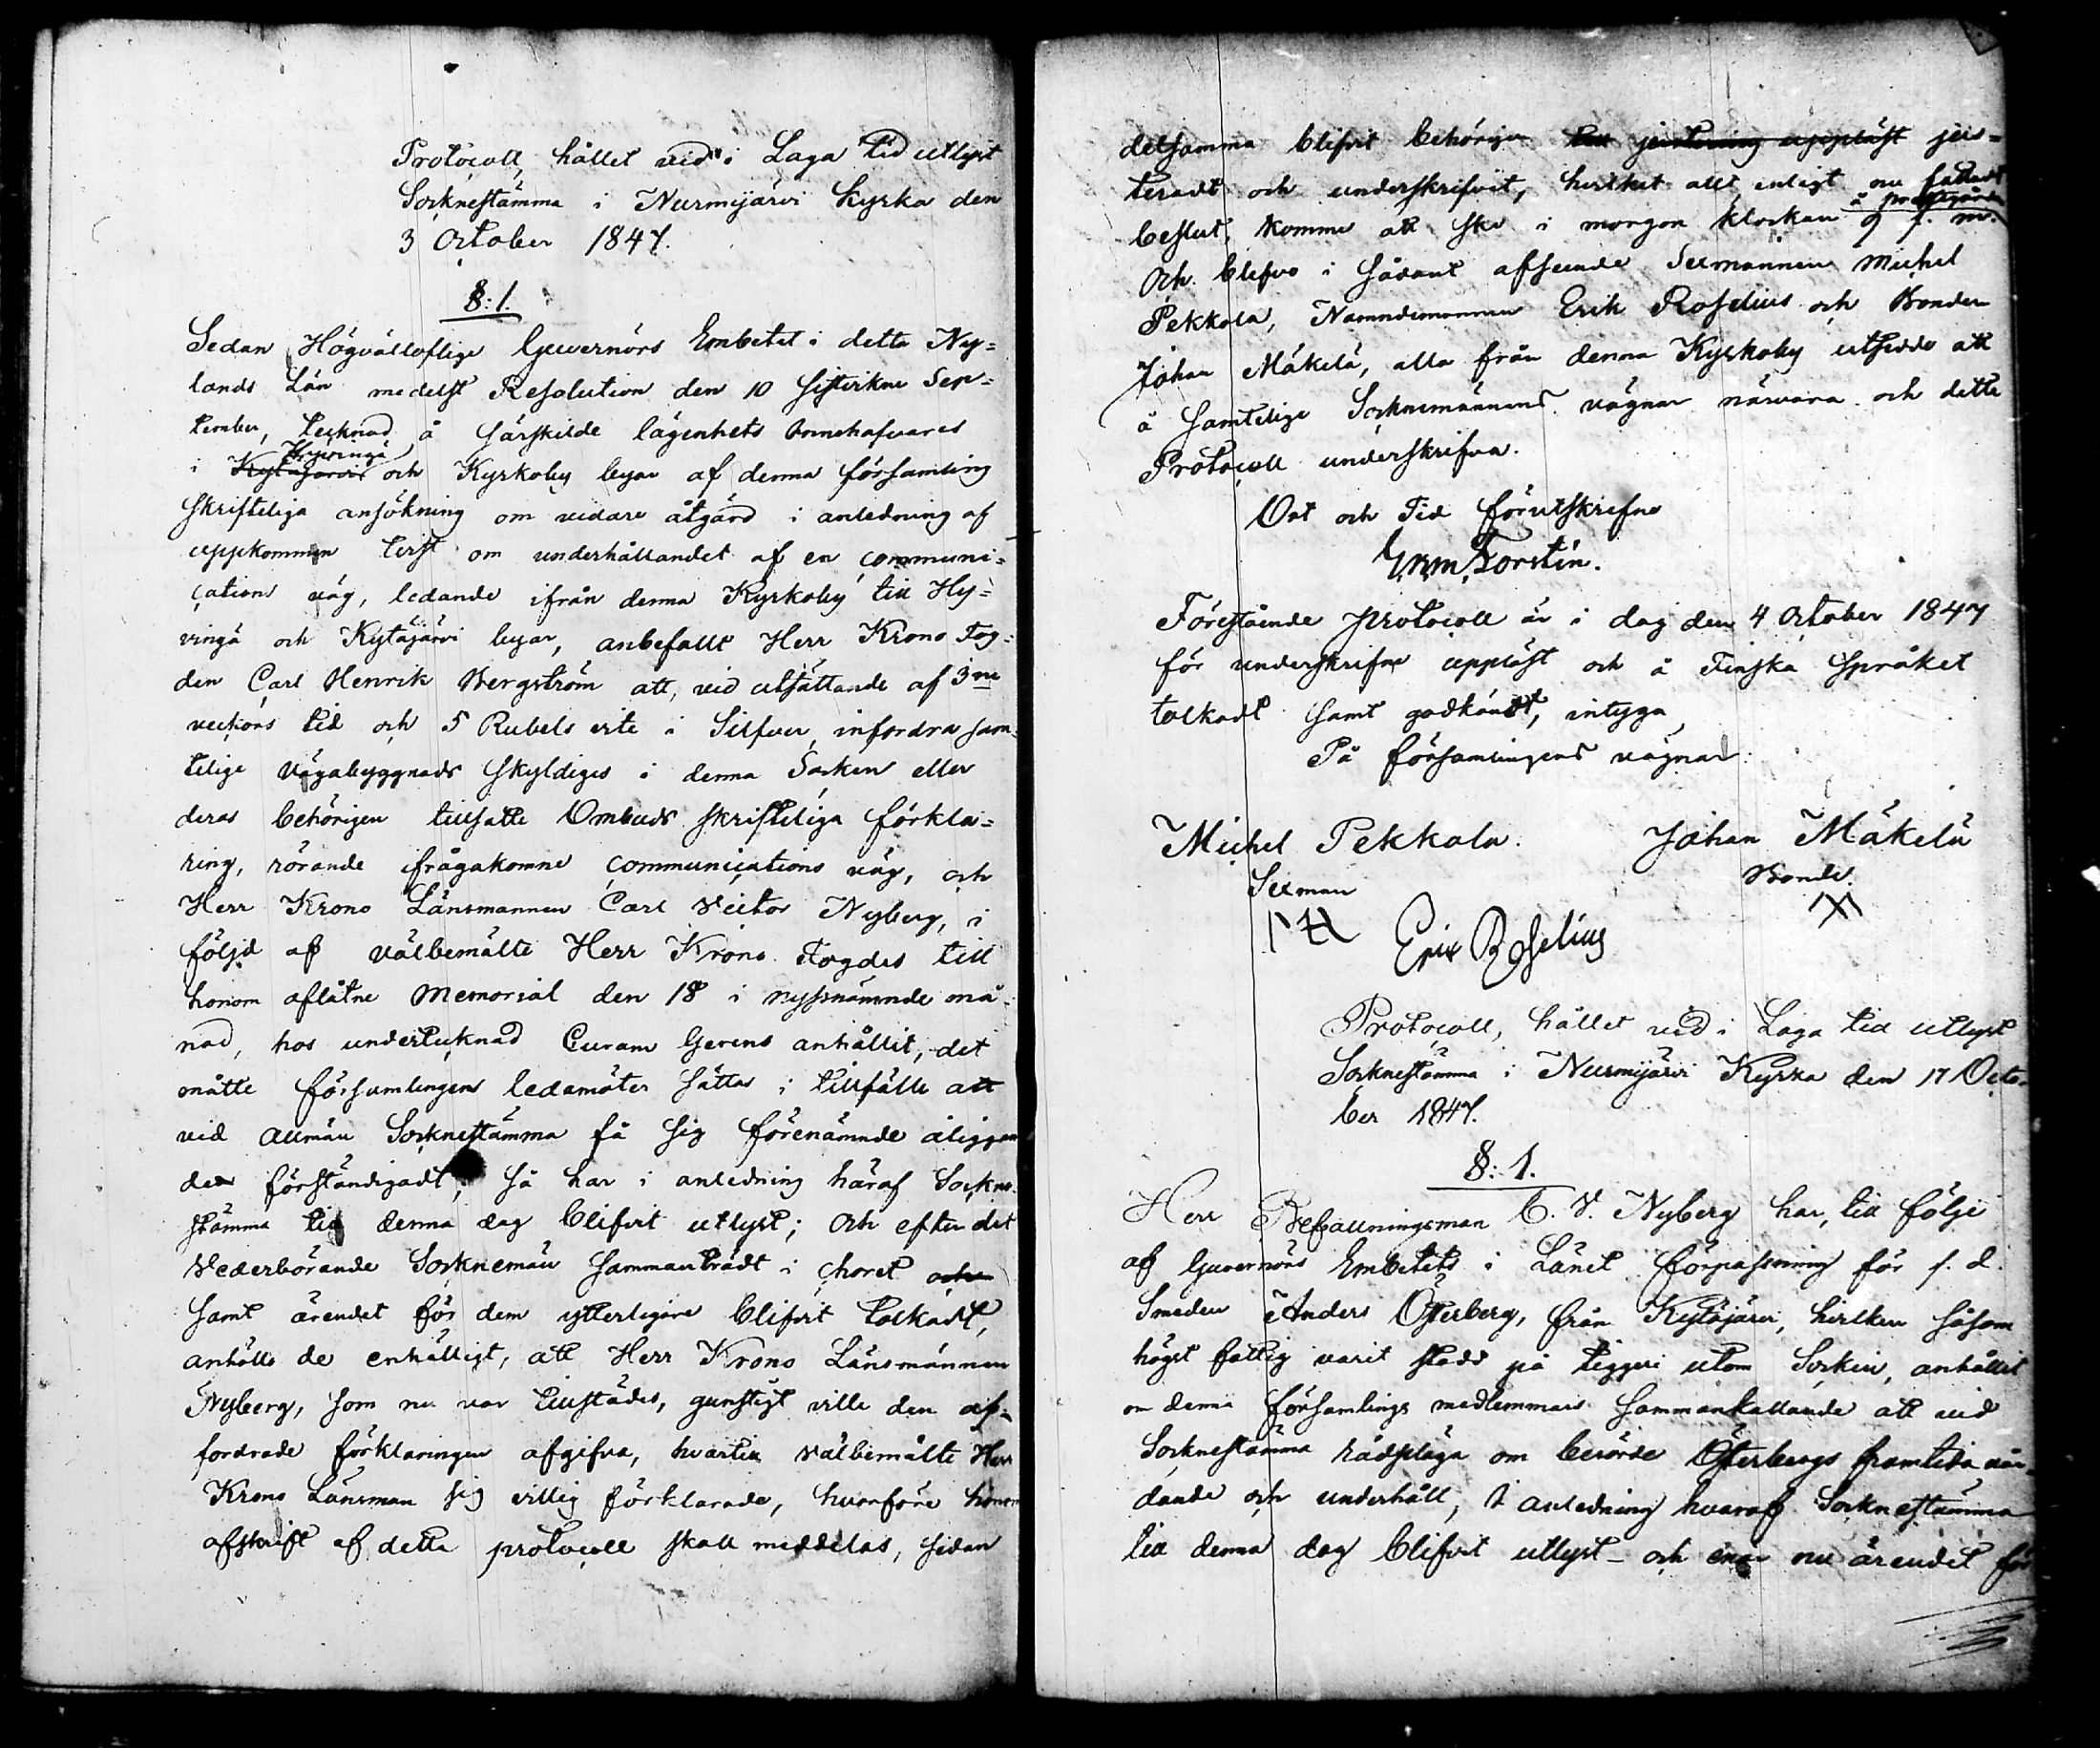 Protocoll, hållet vid i Laga tid utlyst
Socknestämma i Nurmijärvi Kyrka den
3 October 1847.
§: 1.
Sedan Högvälloflige Guvernörs Embetet i detta Ny=
lands Län medelst Resolution den 10 sistvikne Sep=
tember, tecknad å särskilde lägenhets Innehafvares
Hyvingä
i Kytäjärvi och Kyrkoby byar af denna församling
skriftliga ansökning om vidare åtgärd i anledning af
uppkommen tvist om underhållandet af en communi=
cations väg, ledande ifrån denna Kyrkoby till Hy=
vingä och Kytäjärvi byar, anbefallt Herr Krono Fog=
den Carl Henrik Bergström att, vid utsättande af 3ne
veckors tid och 5 Rubels vite i Silfver, infordra sam=
telige Vägabyggnads skyldiges i denna Socken eller
deras behörigen tillsatte Ombuds skriftliga förkla=
ring, rörande ifrågakomne communications väg, och
Herr Krono Länsmannen Carl Victor Nyberg, i
följd af välbemälte Herr Krono Fogdes till
honom aflåtne Memorial den 18 i nyssnämnde må=
nad, hos undertecknad Curam Gerens anhållit, det
måtte församlingens ledamöter sättas i tillfälle att
vid allmän Socknestämma få sig förenämnde åliggan
de förständigadt, så har i anledning häraf Sockne=
stämma till denna dag blifvit utlyst; Och efter det
Vederbörande Socknemän sammanträdt i choret och
samt ärendet för dem ytterligare blifvit tolkadt,
anhöllo de enhälligt, att Herr Krono Länsmannen
Nyberg, som nu var tillstädes, gunstigt ville den af=
fordrade förklaringen afgifva, hvartill Välbemälte Herr
Krono Länsman sig villig förklarade, hvarföre honom
afskrift af detta protocoll skall meddelas, sedan
detsamma blifvit behörigen till justering uppläst jus=
teradt och underskrifvit, hvilket allt enligt nu fattadt
å prestgården
beslut, kommer att ske i morgon klockan 9 f. m.
Och blefvo i sådant afseende Sexmannen Michel
Pekkola, Nämndemannen Erik Roselius och Bonden
Johan Mäkelä, alla från denna Kyrkoby utsedde att
å samtelige Socknemännens vägnar närvara och detta
Protocoll underskrifva.
Ort och Tid förutskrifne
Forstén.
Förestående protocoll är i dag den 4 October 1847
för underskrifne uppläst och å Finska språket
tolkadt samt godkändt, intyga
På församlingens vägnar
Michel Pekkola. Johan Mäkelä
Sexman Bonde.
Erik Roselius
Protocoll, hållet vid i Laga tid utlyst
Socknestämma i Nurmijärvi Kyrka den 17 Octo=
ber 1847.
§: 1.
Herr Befallningsman C. V. Nyberg har, till följe
af Guvernörs Embetets i Länet förpassning för f. d.
Smeden Anders Österberg, från Kytäjärvi, hvilken såsom
högst fattig varit stadd på tiggeri utom Socken, anhållit
om denna församlings medlemmars sammankallande att vid
Socknestämma rådpläga om berörde Österbergs framtida vår=
dande och underhåll, i anledning hvaraf Socknestämma
till denna dag blifvit utlyst – och enär nu ärendet för